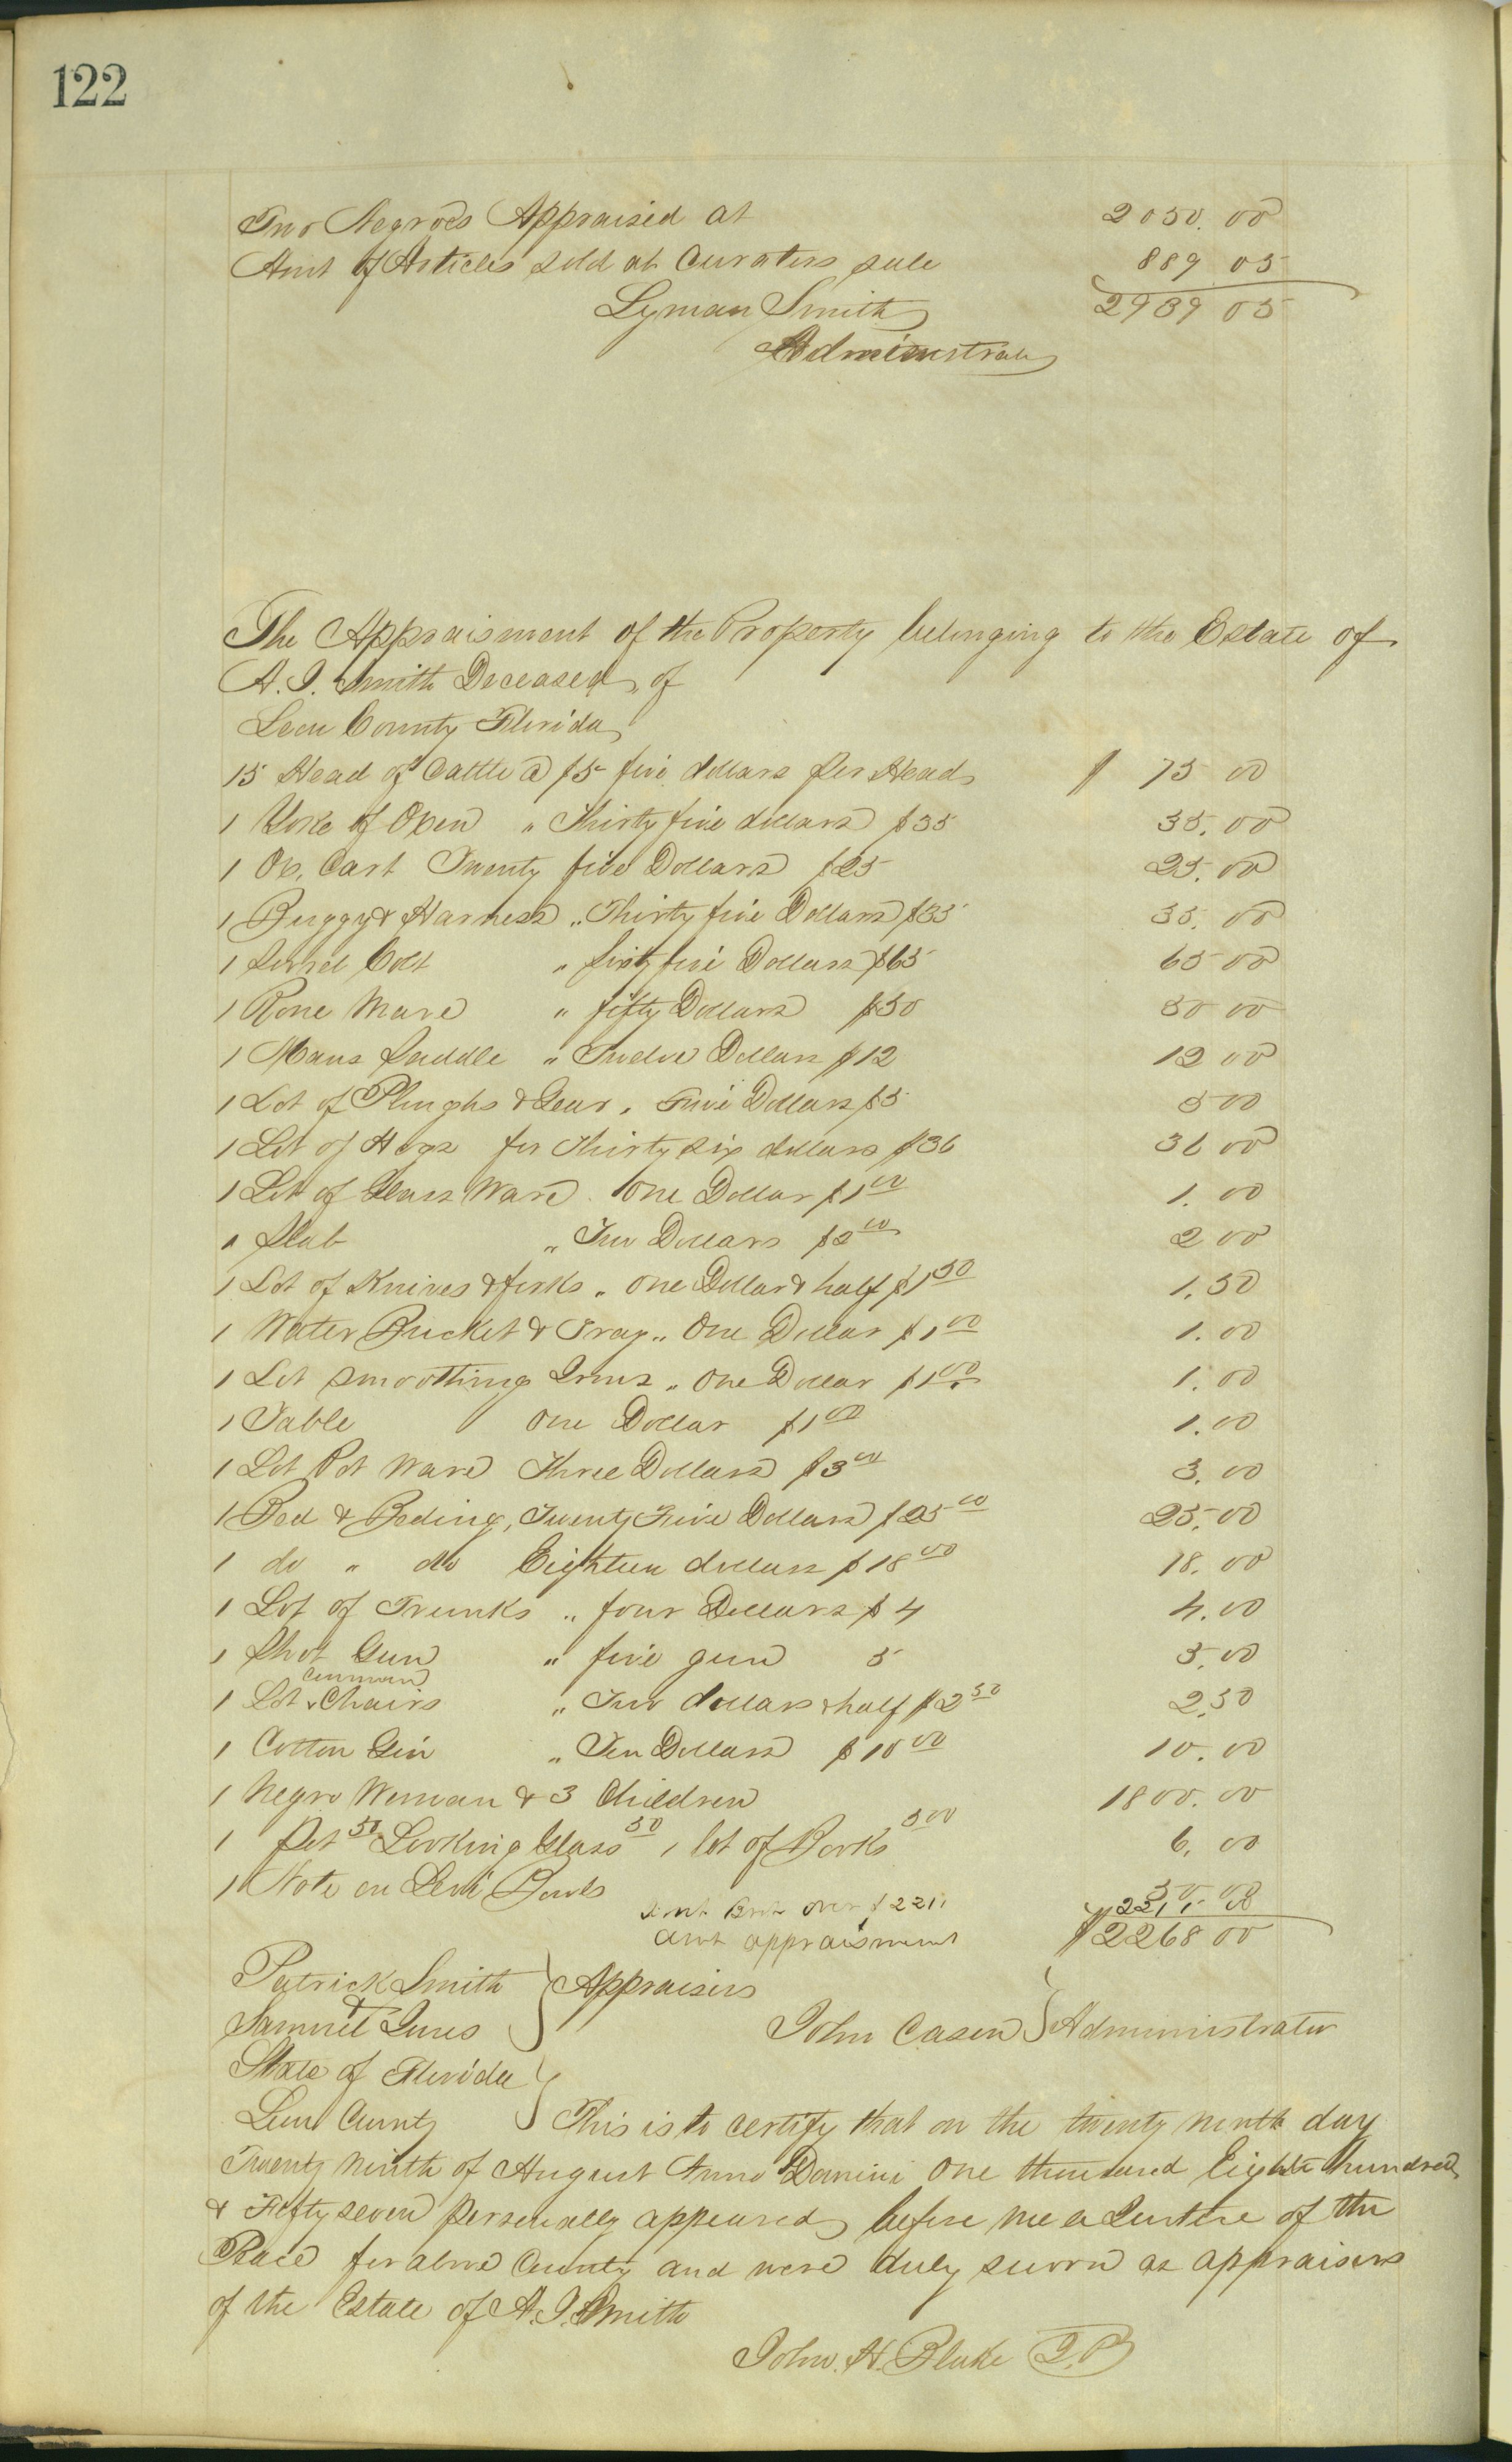 122
Two Negroes Appraised at 2050.00
Amt of Articles sold at Curators sale 889 05
Lyman Smith 2939 05
Administrator
The Appraisment of the Property belonging to the Estate of
A. J. Smith Deceased, of
Leon County Florida
15 Head of Cattle @ $5 five dollars per Head $ 75 00
1 Yoke of Oxen " Thirty five dollars $35 35.00
1 Ox, Cart Twenty five Dollars $25 25.00
1 Buggy & Harness " Thirty five Dollars $35 35.00
1 Sorrel Colt " sixty five Dollars $65 65 00
1 Rone Mare " fifty Dollars $50 50 00
1 Mans Saddle " Twelve Dollars $12 12 00
1 Lot of Ploughs & Gear, Five Dollars $5 5 00
1 Lot of Hogs for Thirty six dollars $36 36 00
1 Lot of Glass Ware. One Dollar $1 00 1.00
1 Slab " Two Dollars $2 00 2 00
1 Lot of Knives & forks " One Dollar & half $1 50 1.50
1 Water Bucket & Tray " One Dollar $1 00 1.00
1 Lot smoothing Irons " One Dollar $1 00 1.00
1 Table One Dollar $1 00 1.00
1 Lot Pot Ware Three Dollars $3 00 3.00
1 Bed & Beding, Twenty Five Dollars $25 00 25.00
1 do " do Eighteen dollars $18 00 18.00
1 Lot of Trunks " four Dollars $4 4.00
1 Shot Gun " five gun 5 5.00
common
1 Lot Chairs " Two dollars & half $2 50 2.50
1 Cotton Gin " Ten Dollars $10 00 10.00
1 Negro Woman & 3 Children 1800.00
1 Pot 50 Looking Glass 50 1 lot of Books 5 00 6.00
1 Note on Levi Bowls 50.00
Amt Brot over $2211 2211.00
Amt appraisment $2268 00
Patrick Smith } Appraisers
&
Samuel Ines John Casen } Administrator
State of Florida }
Leon County This is to certify that on the twenty ninth day
Twenty ninth of August Anno Domini One thousand Eight hundred
& Fifty seven personally appeared before me a Justice of the
Peace for above County and were duly sworn as appraisers
of the Estate of A. J. Smith
John. H. Blake J.P